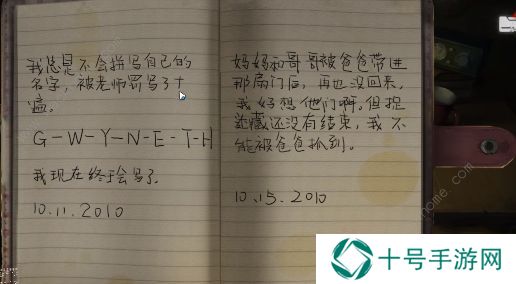 我总是不会拼写自己的
名字，被老师罚写了十
遍。
G-W-Y-N-E-T-H
我现在终于会写了
10.11.2010
妈妈和哥哥被爸爸带进
那扇门后，再也没回来，
我好想他们啊。但捉
迷藏还没有结束，我不
能被爸爸抓到。
10.15.2010
十号手游网